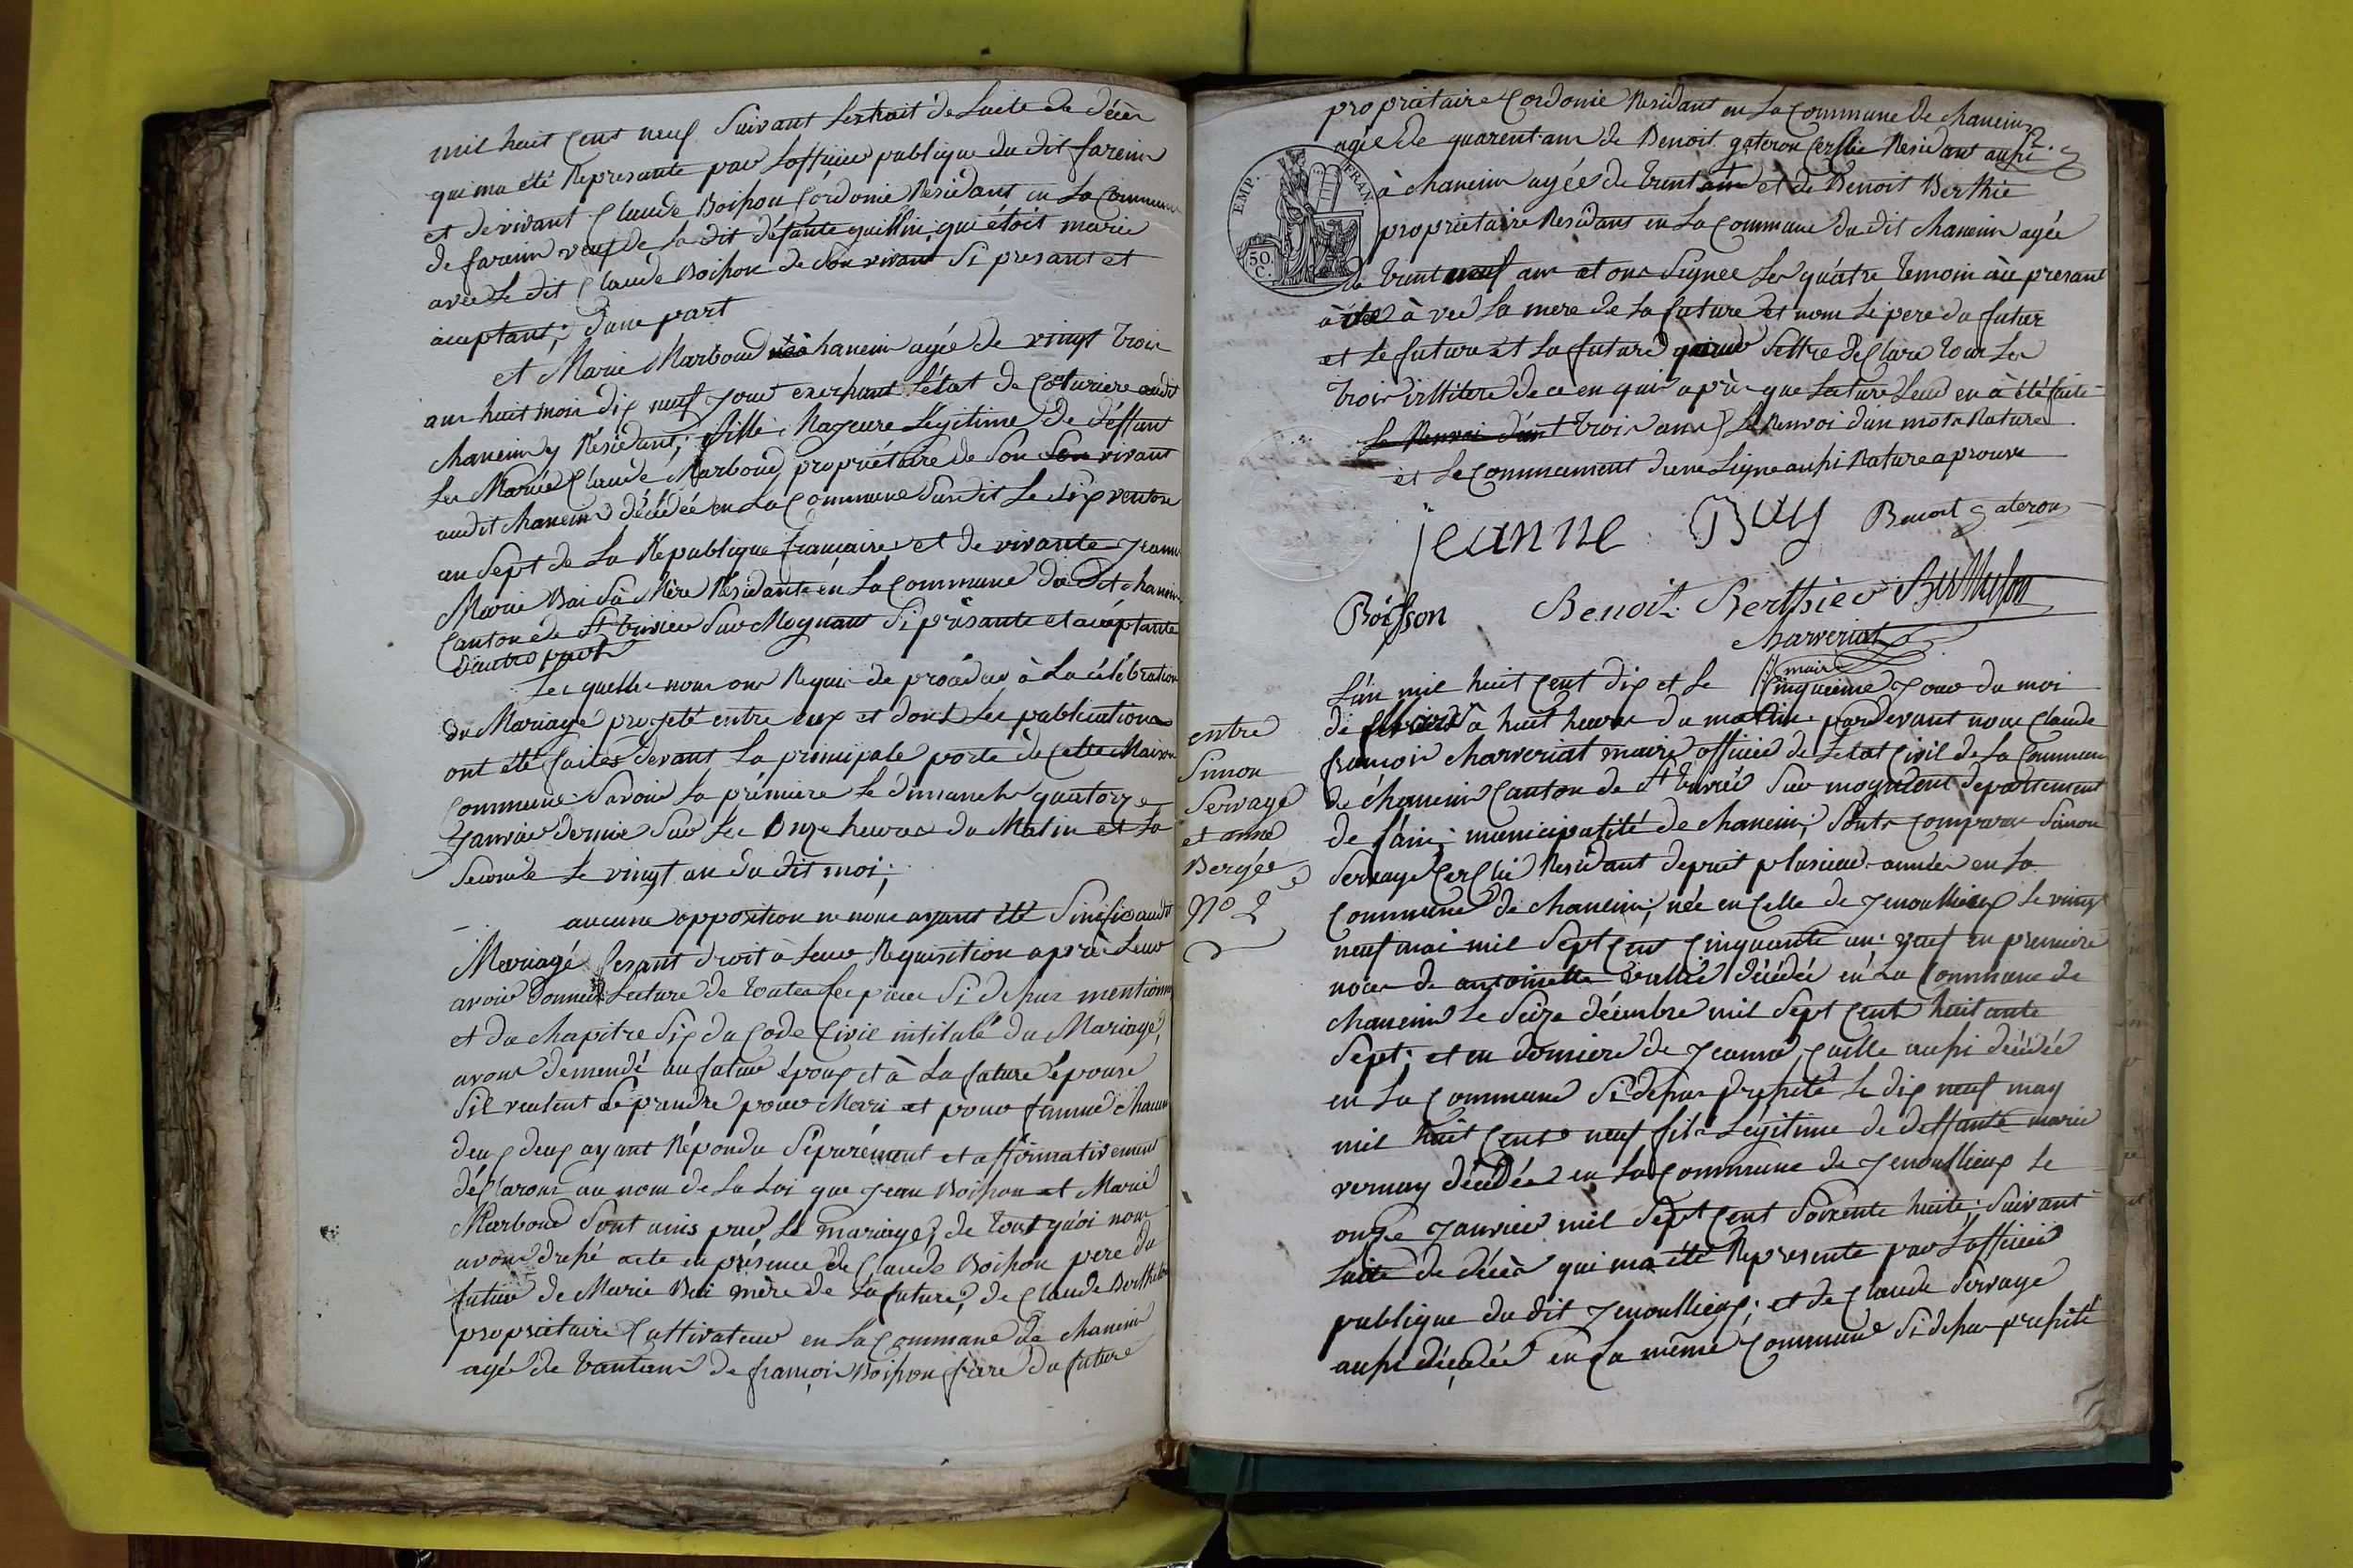 mil huit Cent neuf Suivant Lextrait de Lacte de décès
qui ma été Represante par Lofficier publique du dit fareins
et de vivant Claude Boisson Cordonié Residant en La Commune
de fareins veuf de La dit défante qui étoit marié
avec Le dit Claude Boisson de Son vivant Si presant et
aceptant; d'une part
et Marie Marboud née à chanein agée de vingt trois
ans huit mois dix neuf jour exerçant L'état de Coturiere audit
chanein y Résidant; fille Majeure Légitime de déffunt
Le Marié Claude Marboud propriétaire de Son Son vivant
audit chanein décédée en La Commune Susdit Le dix ventose
an Sept de La République française et de vivante jeanne
Marie Bai Sa Mère Résidante en La Commune du dit chanein
Canton de St trivier Sur Mognant Si présante et aceptante
d'autre part
Les quelles nous ons Requis de procéder à La célébration
du Mariage projeté entre eux et dont Les publications
ont été faites devant La principale porte de Cette Maison
Commune Savoir La première Le dimanche quatorze
janvier dernier Sur Les onze heures du Matin et La
Seconde Le vingt un du dit moi;
aucune opposition ne nous ayant été Sinifié audit
Mariage fesant droit à Leur Requisition après Leur
avoir donné Lecture de toutes Les pieces Si dessus mentionné
et du chapitre Six du Code Civil intitulé du Mariage,
avons demendé au futur époux et à La future épouse
Sil veulent Se prendre pour Mari et pour femme chacun
deux deux ayant Répondu Séparément et affirmativement
déclarons au nom de La Loi que jean Boisson et Marie
Marboud Sont unis par Le mariage; de tout quoi nous
avons dressé acte en présence de Claude Boisson pere du
futur de Marie Bai mère de La future, de Claude Berthelon
propriétaire Cultivateur en La Commune de chanein
agée de trantans de françois Boisson frere du future
propriétaire Cordonié Residant en La Commune de chanein
2.
agée de quarent ans de Benoit gateron Cerclié Residant aussi
à chanein agée de trent ans et de Benoit Berthié
EMP. FRAN.
50. C.
propriétaire Residans en La Commune du dit chanein agée
de trent neuf ans et ons Signee Les quatre temoin presant
à vec La mere de La future et nom Le pere du futur
et Le future et La future declare tous Les
trois illitere de ce en quis après que Lecture Leur en à été faite
Le Renvoi d'un mots Nature
et Le Commencement d'une Ligne aussi Nature aprouve
jeanne Bay Benoit gateron
Boisson Benoit Berthier Berthelon
charveriat
maire
L'an mil huit Cent dix et Le Cinquieme jour du moi
de fevrier à huit heures du matin pardevant nous Claude
françois charveriat maire officier de Letat Civil de La Commune
de chanein Canton de St trivié Sur mognent departement
de L'ain; municipatité de chanein; Sonts comparus Simon
Servage Cerclié Residant depuit plusieurs années en La
Commune de chanein; née en Celle de jenoullieux Le vingt
neuf mai mil Sept Cent Cinquante un; veuf en premiere
noces de antoinette vallié décédée en La Commune de
chanein Le Seize décembre mil Sept Cent huit ante
Sept; et en derniere de jeanne Caille aussi décédée
en La Commune Si dessus presité Le dix neuf may
mil huit Cent neuf fils Legitime de deffante marie
vernay décédée en La Commune de jenoullieux Le
onze janvier mil Sept Cent Soixente huite; Suivant
Lacte de décès qui ma été Represente par L'officier
publique du dit jenoullieux; et de Claude Servage
aussi décédée en La même Commune Si dessus presité
entre
Simon
Servage
et anne
Bergée
N° 2